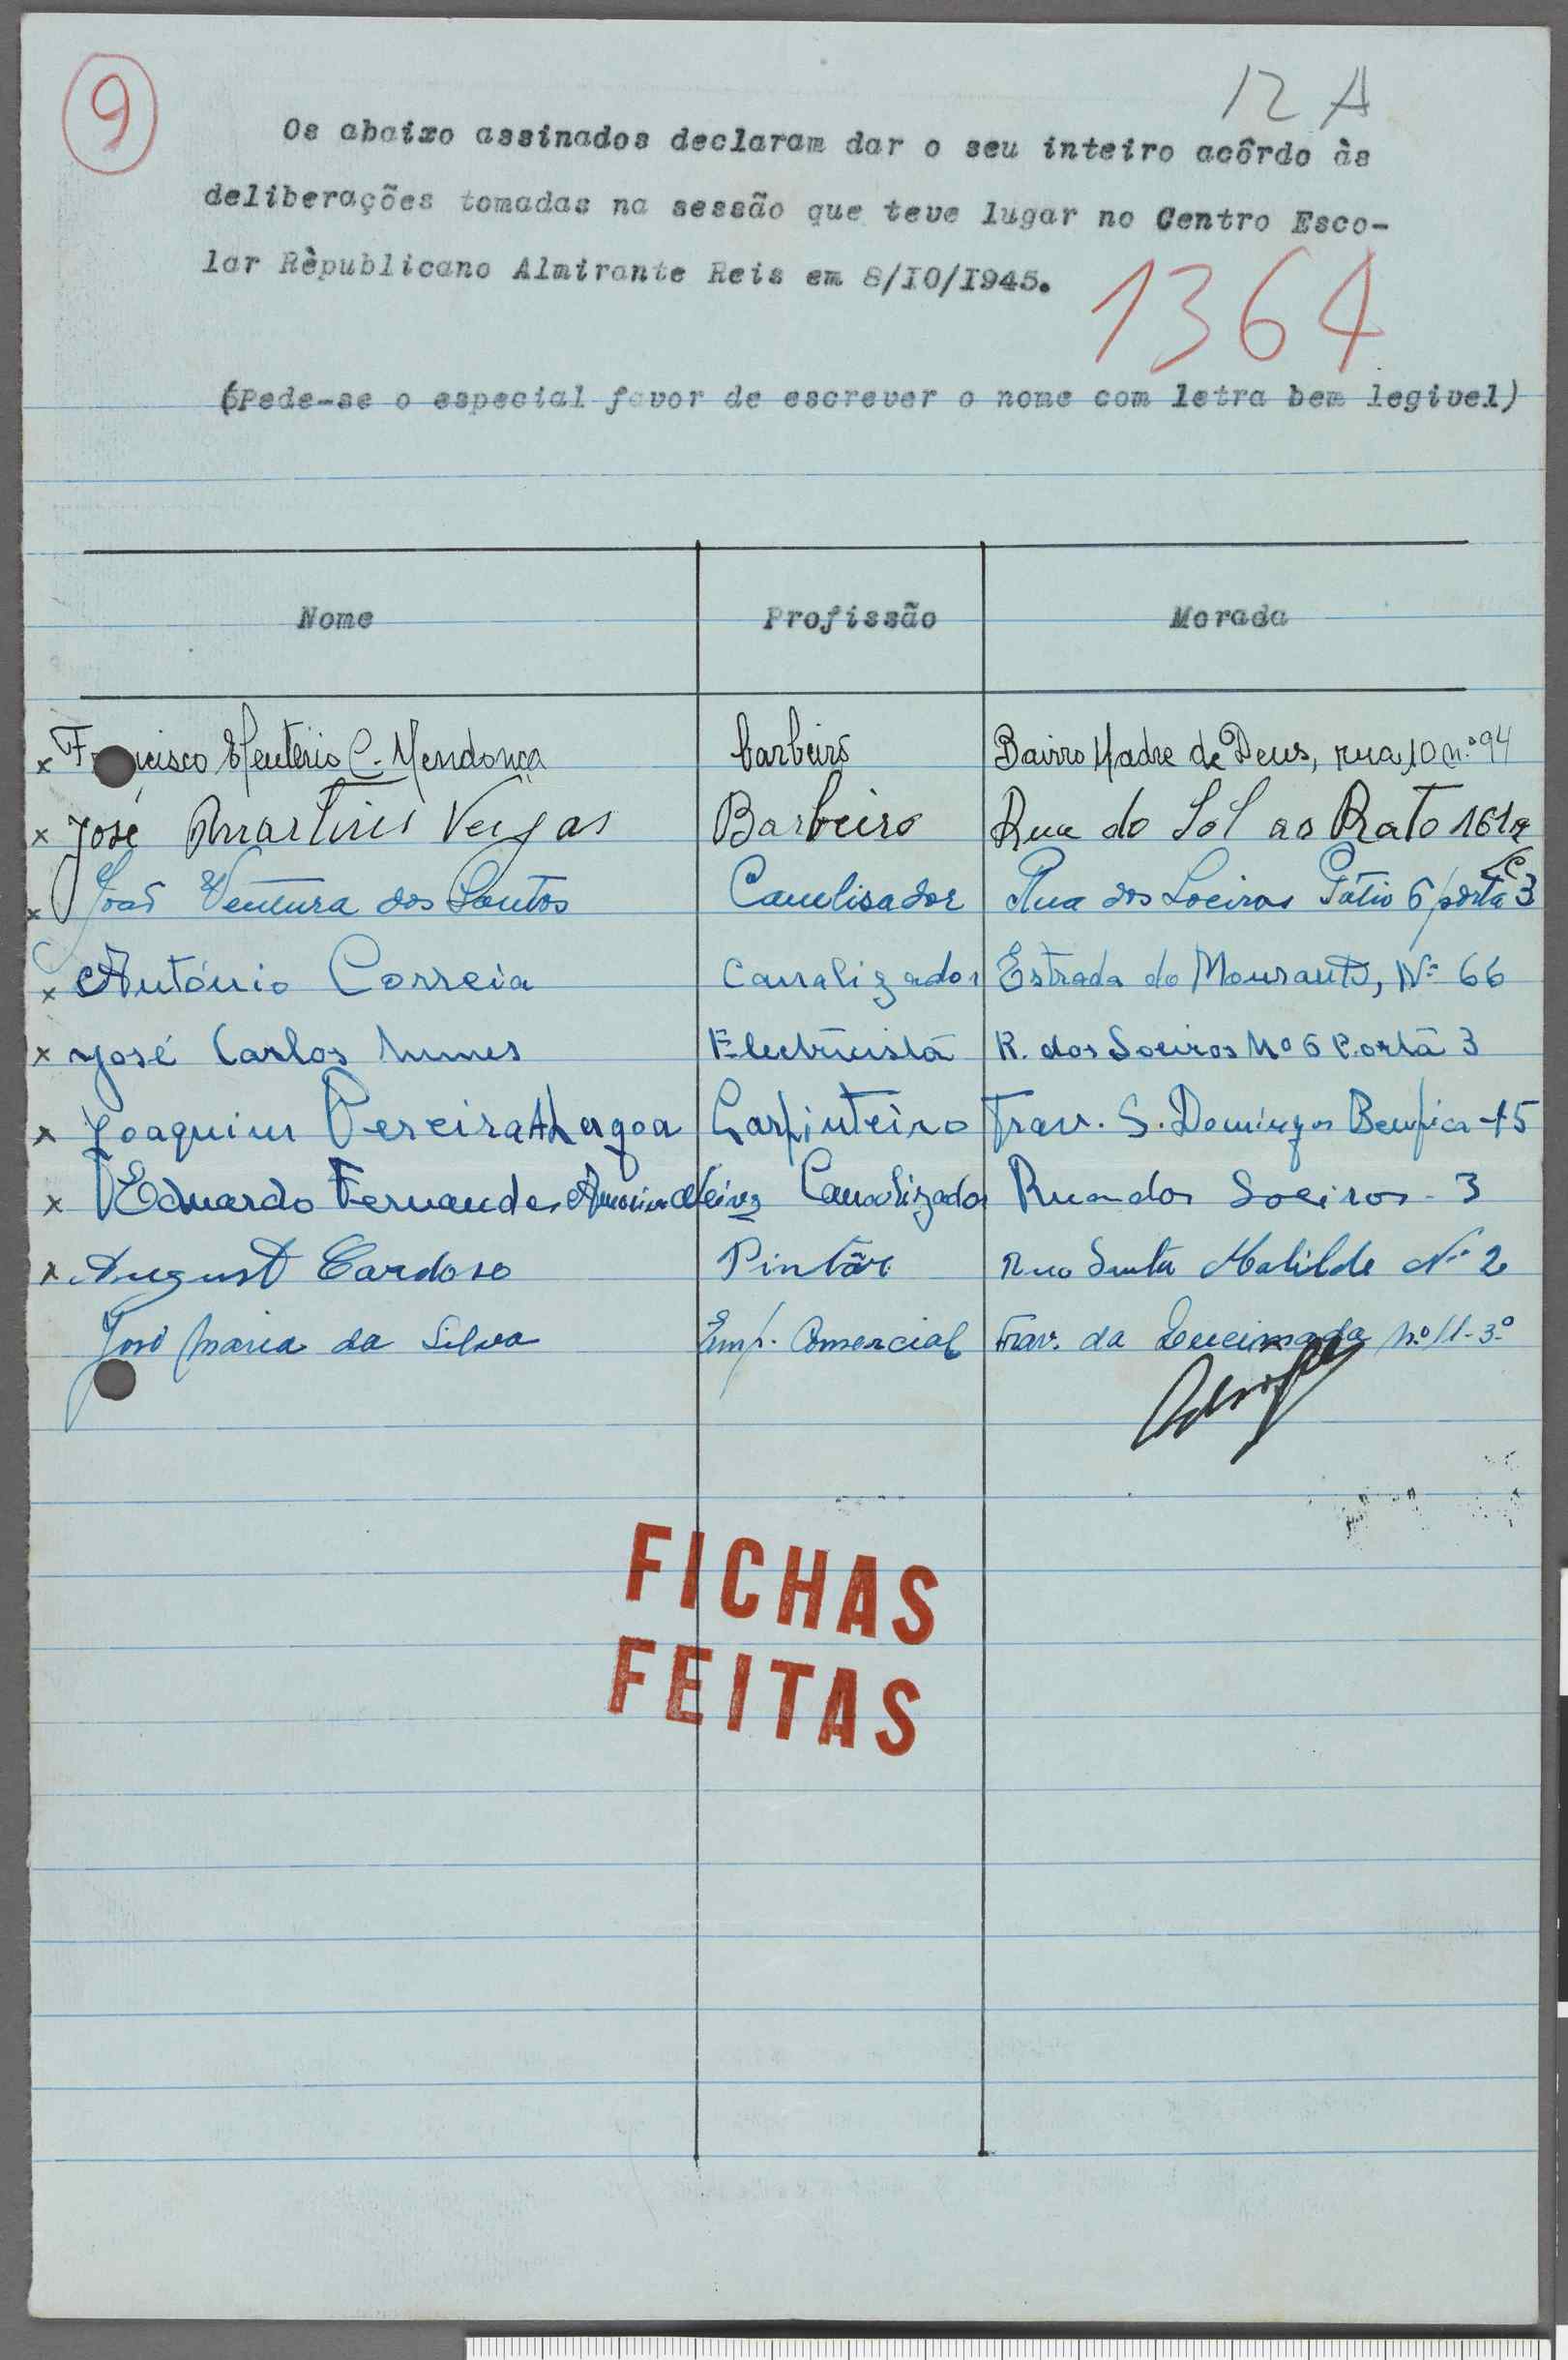 9
12 A
Os abaixo assinados declaram dar o seu inteiro acôrdo às
deliberações tomadas na sessão que teve lugar no Centro Esco-
lar Rèpublicano Almirante Reis em 8/I0/I945.
1364
(Pede-se o especial favor de escrever o nome com letra bem legivel)
Nome Profissão Morada
x Francisco Eleutério C. Mendonça barbeiro Bairro Madre de Deus, rua 10 n.º 94
x José Martins Veigas Barbeiro Rua do Sól ao Rato 161
x João Ventura dos Santos Canalisador Rua dos Soeiros Pátio 6 porta 3
x António Correia Canalizador Estrada do Mourant, Nº 66
x José Carlos Nunes Electricista R. dos Soeiros Nº 6 Porta 3
x Joaquim Pereira Lagoa Carpinteiro Trav. S. Domingos Benfica 15
x Eduardo Fernandes Canalizador Rua dos Soeiros - 3
x August Cardoso Pintôr Rua Santa Matilde Nº 2
José Maria da Silva Emp. Comercial Trav. da Queimada Nº 11-3º
FICHAS
FEITAS